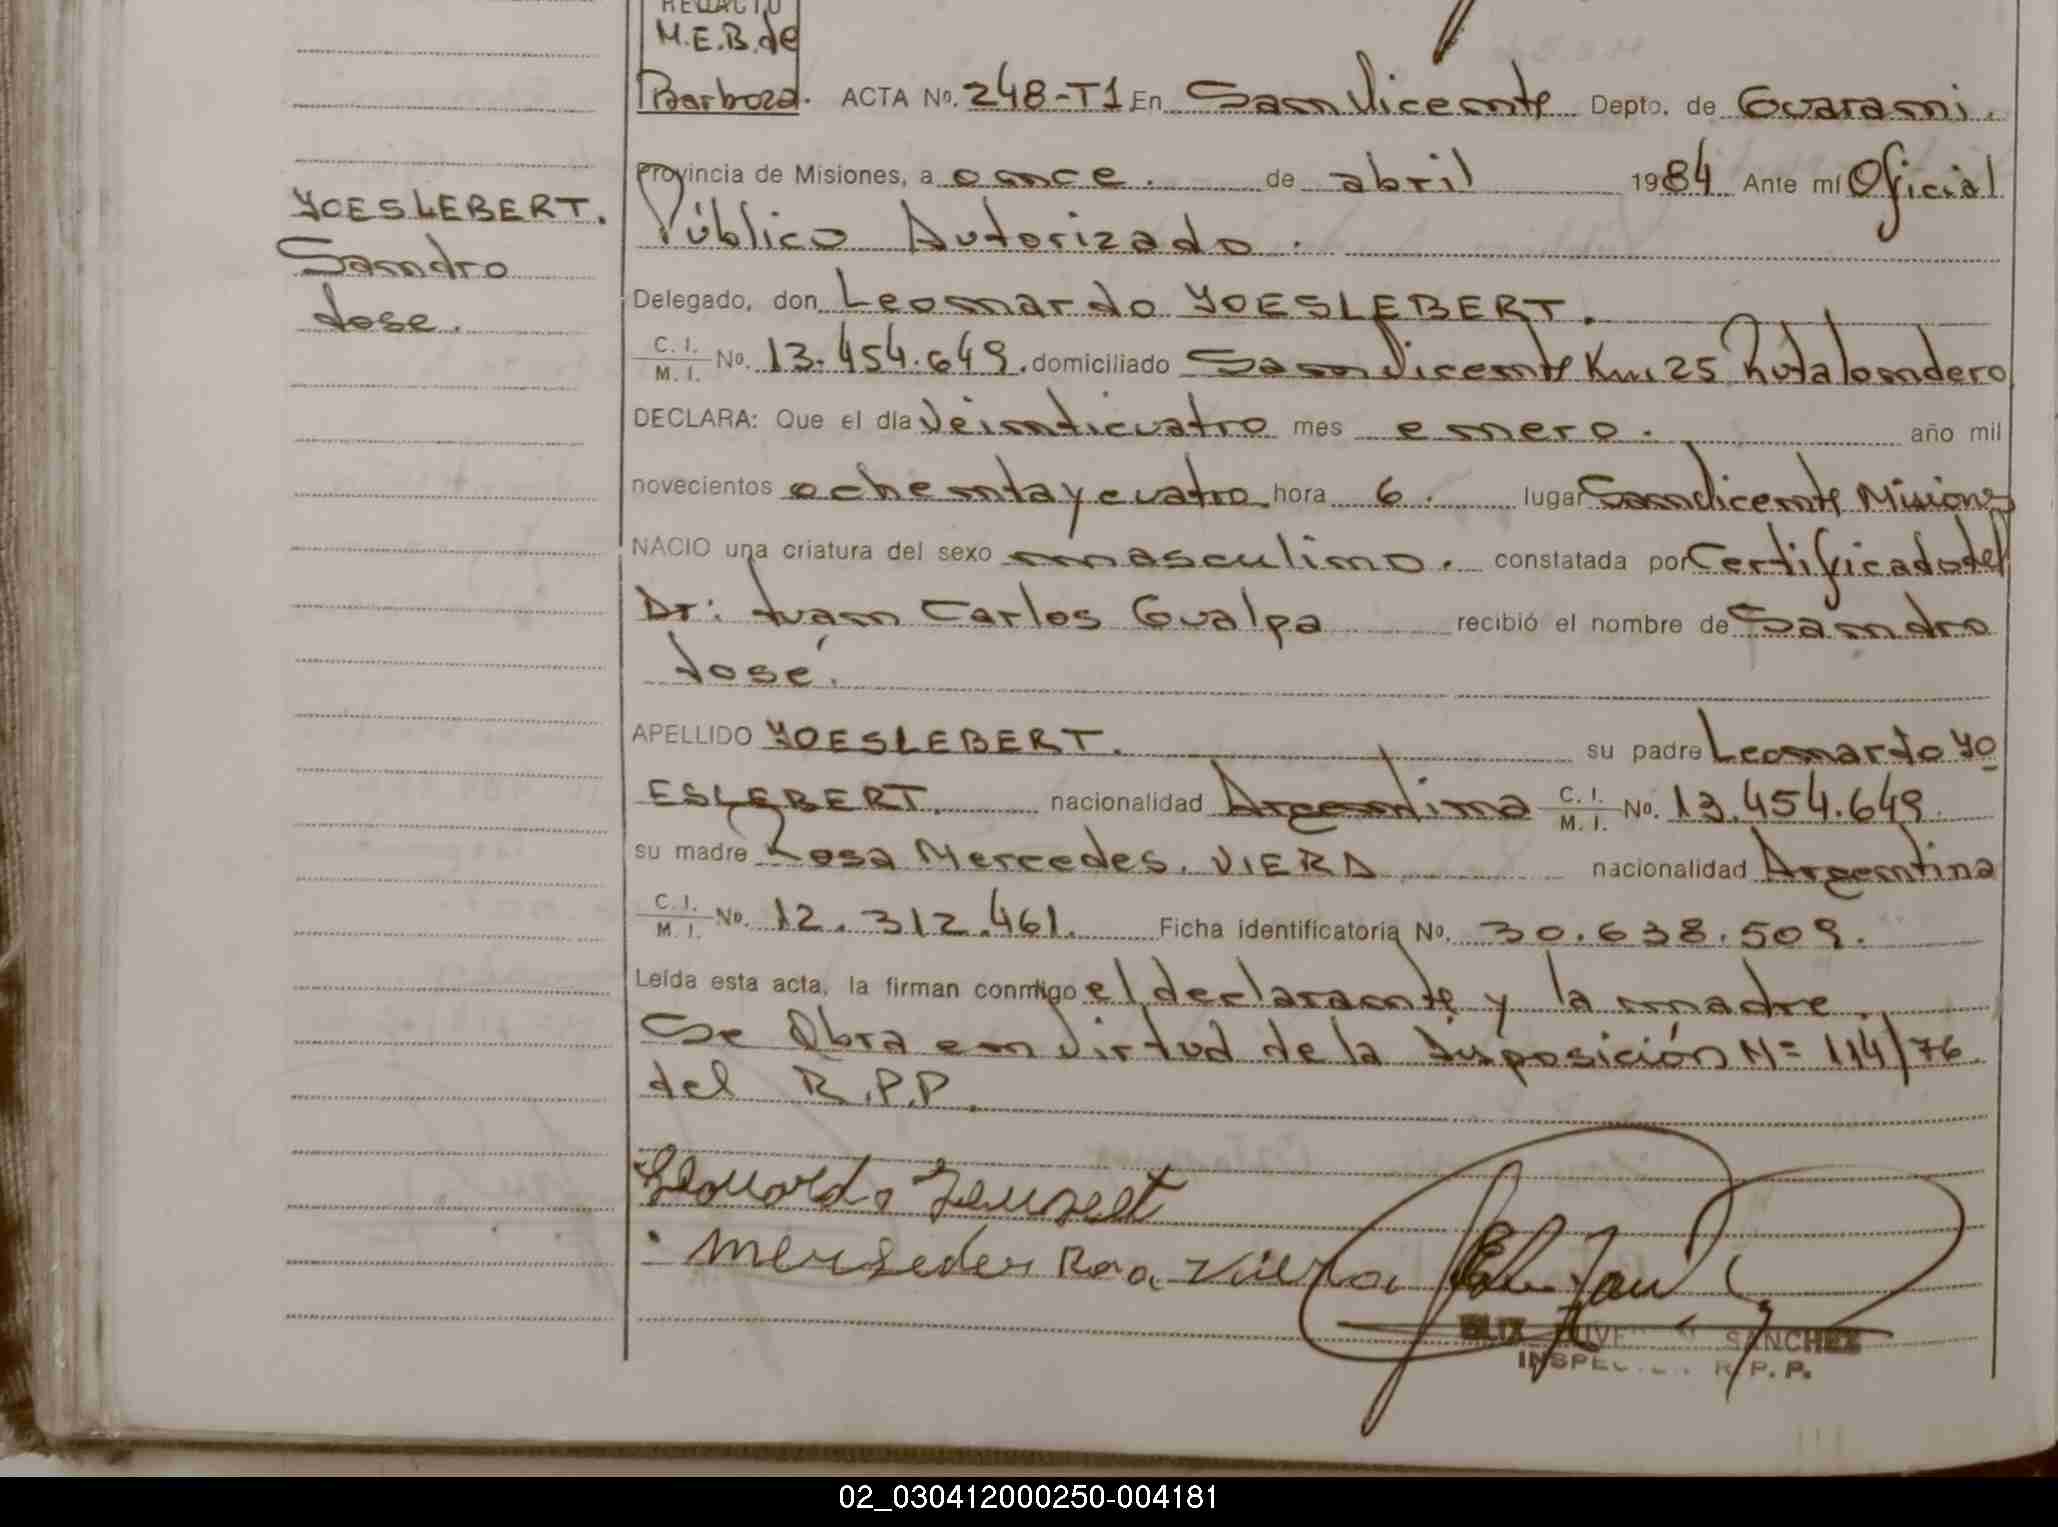 REDACTO
M.E.B. de
Barboza. ACTA No. 248-T1 En San Vicente Depto. de Guarani.
Provincia de Misiones, a once. de abril 1984 Ante mí Oficial
Público Autorizado.
YOESLEBERT.
Sandro
Jose.
Delegado, don Leonardo YOESLEBERT.
C. I. / M. I. No. 13.454.649. domiciliado San Vicente Km 25 Ruta londero
DECLARA: Que el día veinticuatro mes enero. año mil
novecientos ochenta y cuatro hora 6. lugar San Vicente Misiones
NACIO una criatura del sexo masculino. constatada por Certificado del
Dr: Juan Carlos Gualpa recibió el nombre de Sandro
José.
APELLIDO YOESLEBERT. su padre Leonardo YO
ESLEBERT. nacionalidad Argentina C. I. / M. I. No. 13.454.649.
su madre Rosa Mercedes. VIERA nacionalidad Argentina
C. I. / M. I. No. 12.312.461. Ficha identificatoria No. 30.638.509.
Leída esta acta, la firman conmigo el declarante y la madre.
Se Obra en virtud de la Disposición N= 114/76
del R.P.P.
Merseder Rosa Viera
SANCHEZ
R. P. P.
02_030412000250-004181